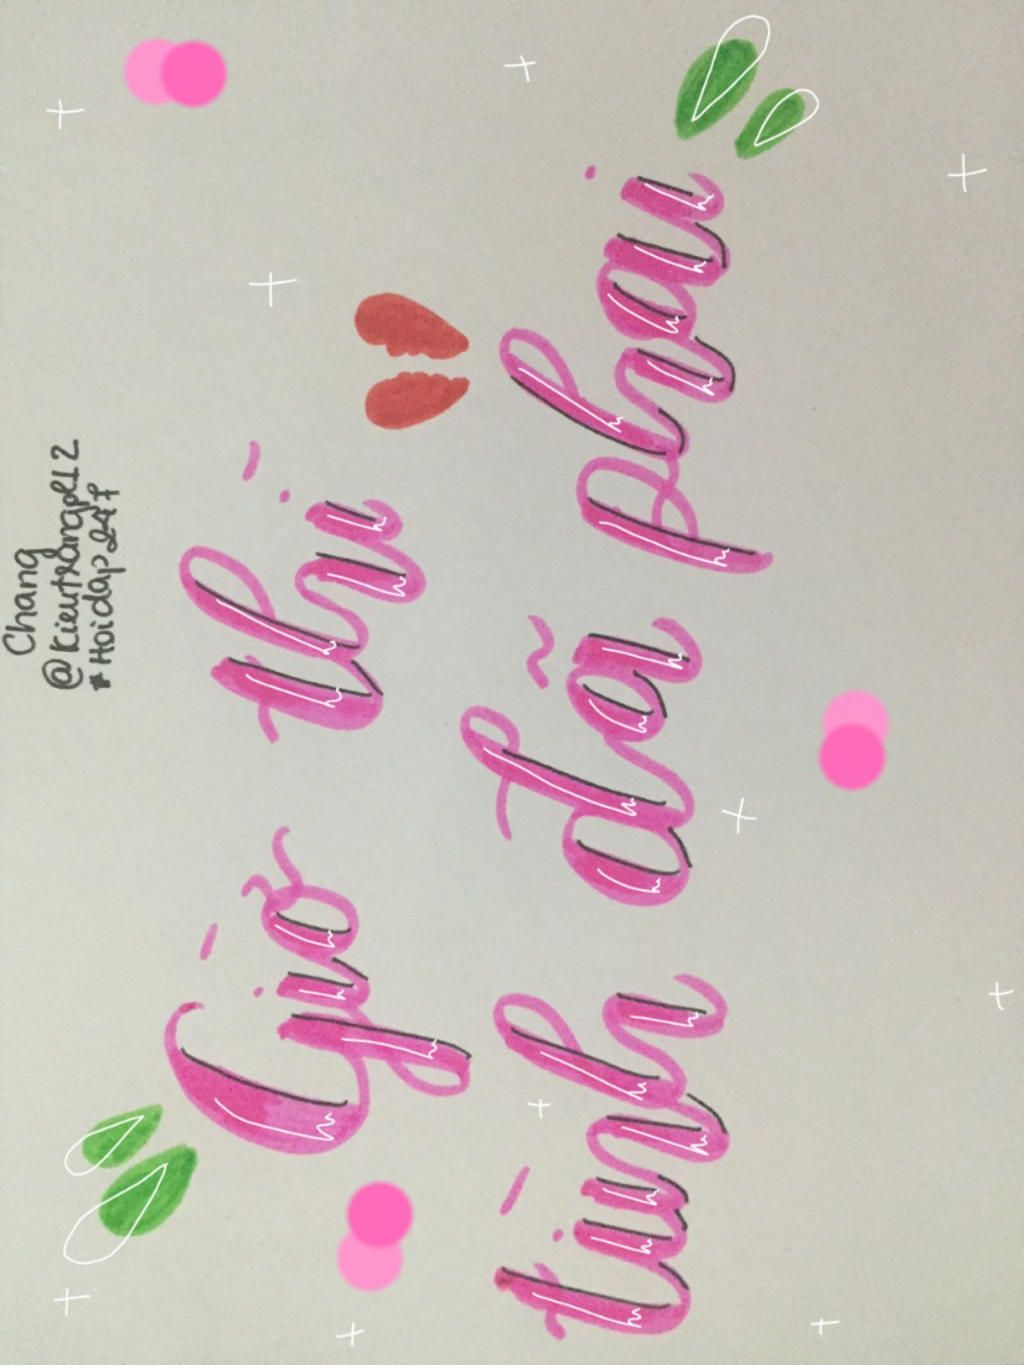 Chang
@Kieutrangpl12
#Hoidap247
Giờ thì
tình đã phai